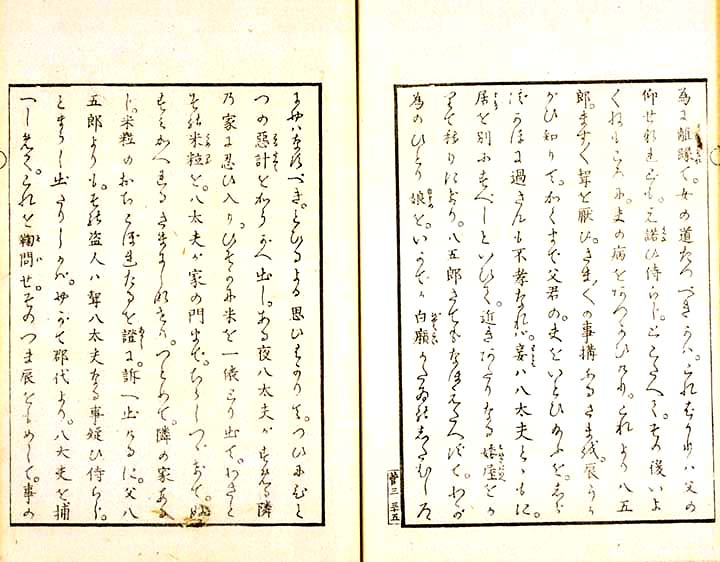 為に離縁して。女の道たつべきかは。こればかりは父の
仰せられても。え諾ひ侍らじ。とこたへて。その後いよ
くねもころに。夫の病をあつかひけり。これより八五
郎。ますく聟を厭ひ。さまくの事構ふるさまを。辰うか
がひ知りて。かくまで父君の。夫をいとひ給ふを。しら
ずがほに過さんも不孝なれば。妾は八太夫とゝもに。
居を別にすべしといひて。近きあたりなる矮屋をか
りて移りにけり。八五郎さてもなほ
為のひとり娘を。いかでか白癩かたゐのしたむしろ
三 三五
なすべき。とひるよる思ひはかりて。つひにひと
つの惡計をかうがへ出し。ある夜八太夫がすめる隣
の家に忍び入り。ひそかに米を一俵とり出て。わざと
その米粒を。八太夫が家の門まで。ちらしつゝおきて。ぬ
すみかへれるさまに つとめて。隣の家ある
じ。米粒のおちこぼれたるを證に。訴へ出けるに。父八
五郎よりも。その盗人ハ聟八太夫なる事疑ひ侍らじ。
とまうし出たりしかば。やがて郡代より。八太夫を捕
へしめて。これを鞫問せ。そのつま辰をもめして。事の